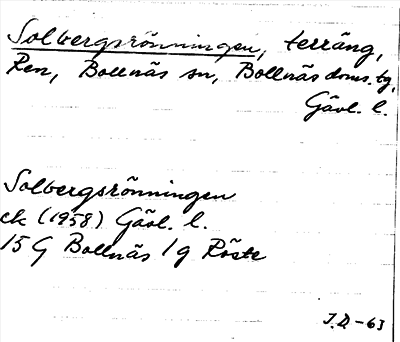 Solbergsrönningen, terräng,
Ren, Bollnäs sn, Bollnäs doms. tg,
Gävl. l.
Solbergsrönningen
ek (1958) Gävl. l.
15 G Bollnäs 1g Röste
J.D. -63